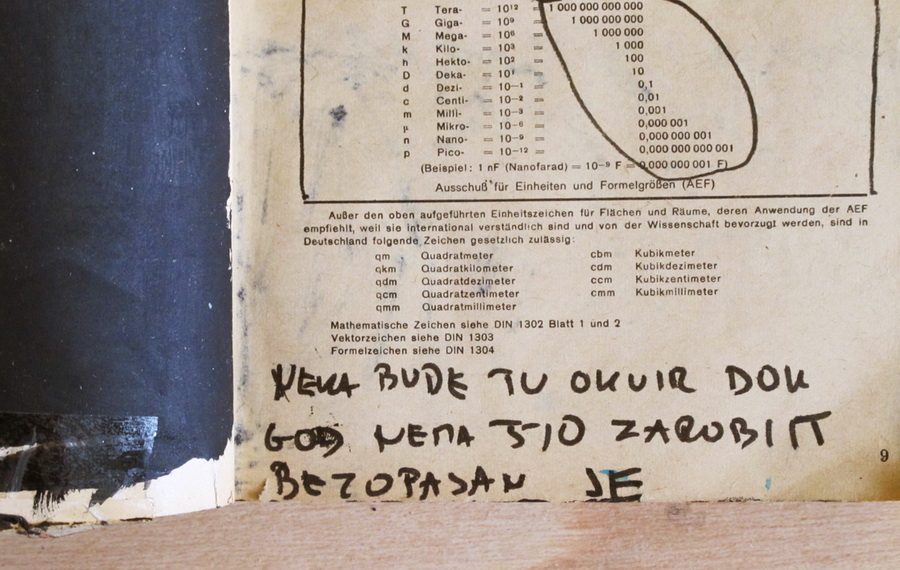 T Tera- = 10¹² = 1 000 000 000 000
G Giga- = 10⁹ = 1 000 000 000
M Mega- = 10⁶ = 1 000 000
k Kilo- = 10³ = 1 000
h Hekto- = 10² = 100
D Deka- = 10¹ = 10
d Dezi- = 10⁻¹ = 0,1
c Centi- = 10⁻² = 0,01
m Milli- = 10⁻³ = 0,001
µ Mikro- = 10⁻⁶ = 0,000 001
n Nano- = 10⁻⁹ = 0,000 000 001
p Pico- = 10⁻¹² = 0,000 000 000 001
(Beispiel: 1 nF (Nanofarad) = 10⁻⁹ F = 0,000 000 001 F)
Ausschuß für Einheiten und Formelgrößen (AEF)
Außer den oben aufgeführten Einheitszeichen für Flächen und Räume, deren Anwendung der AEF
empfiehlt, weil sie international verständlich sind und von der Wissenschaft bevorzugt werden, sind in
Deutschland folgende Zeichen gesetzlich zulässig:
qm Quadratmeter cbm Kubikmeter
qkm Quadratkilometer cdm Kubikdezimeter
qdm Quadratdezimeter ccm Kubikzentimeter
qcm Quadratzentimeter cmm Kubikmillimeter
qmm Quadratmillimeter
Mathematische Zeichen siehe DIN 1302 Blatt 1 und 2
Vektorzeichen siehe DIN 1303
Formelzeichen siehe DIN 1304
NEKA BUDE TU OKVIR DOK
GOD NEMA ŠTO ZAROBITI
BEZOPASAN JE
9